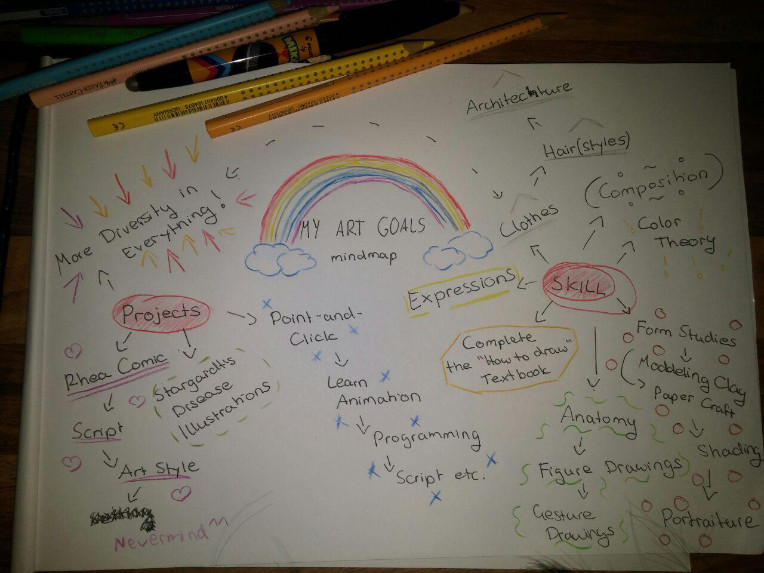 MY ART GOALS
mindmap
More Diversity in
Everything!
Projects
Rhea Comic
Script
Art Style
Nevermind^^
Stargardts
Disease
Illustrations
Point-and-
Click
Learn
Animation
Programming
Script etc.
SKILL
Expressions
Clothes
Hair(styles)
Architecture
(Composition)
Color
Theory
Complete
the "How to draw"
Textbook
Anatomy
Figure Drawings
Gesture
Drawings
Form Studies
Moddeling Clay
Paper Craft
Shading
Portraiture